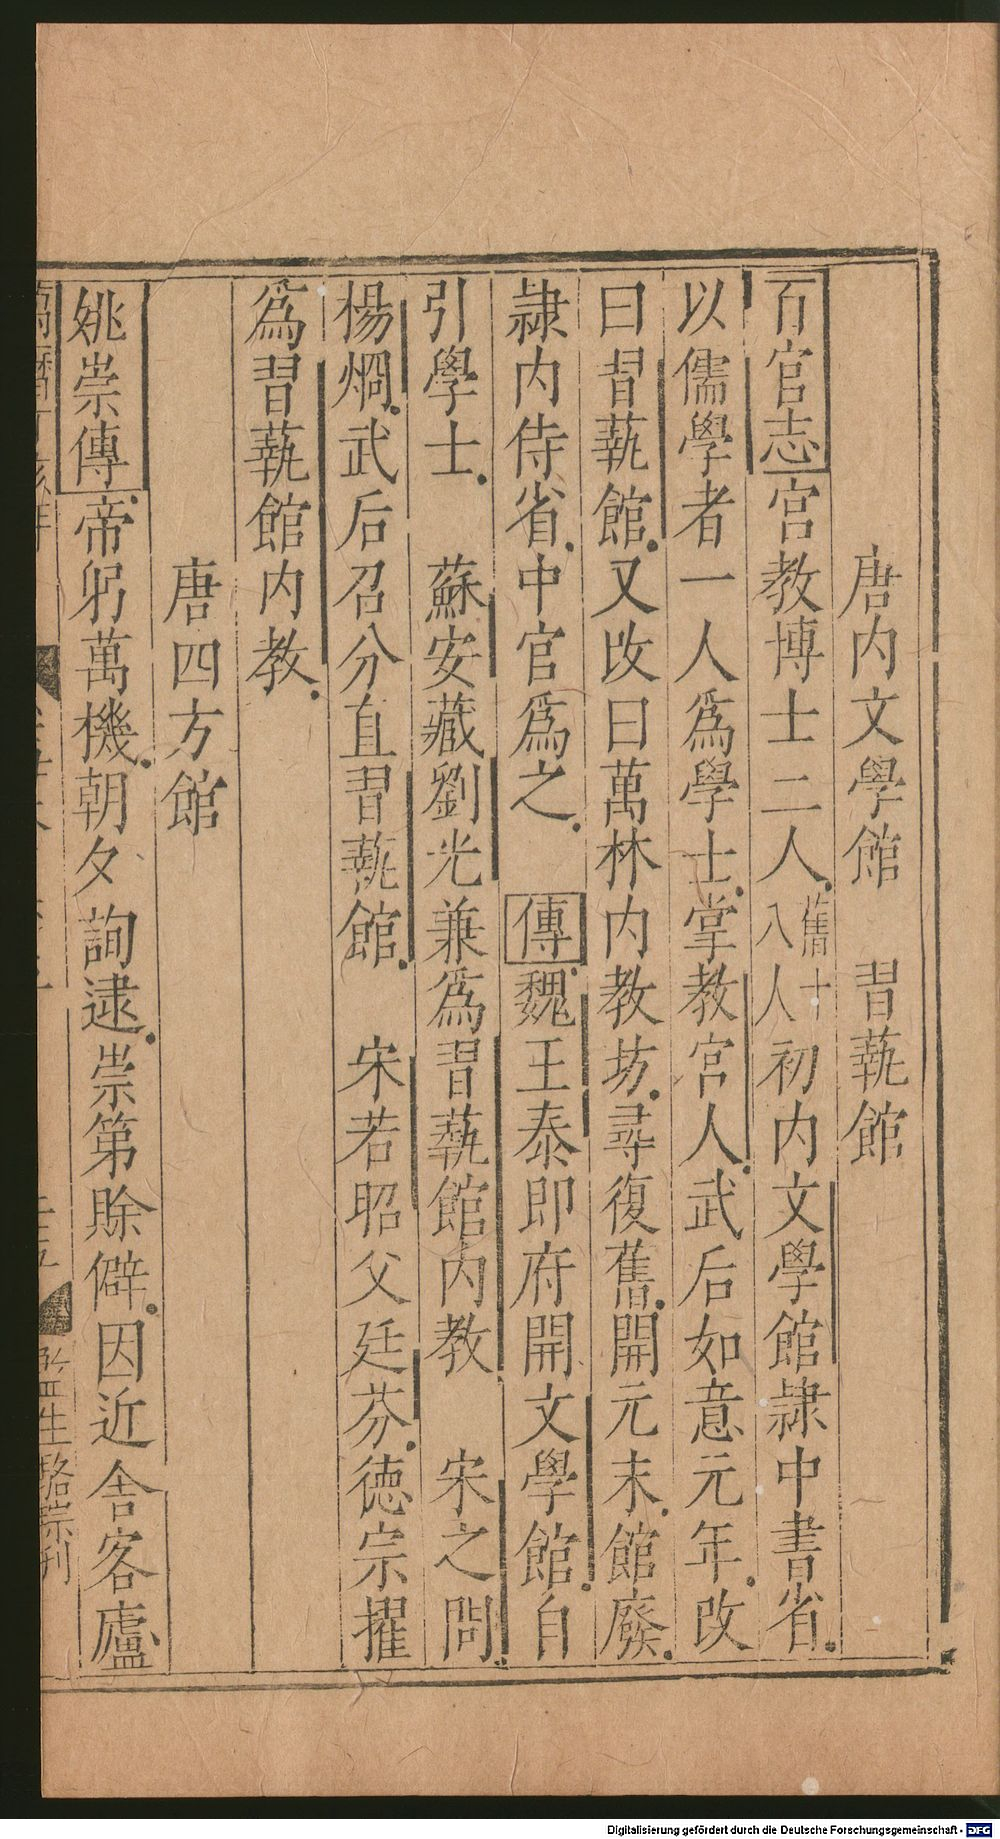 唐内文學館　習藝館
百官志宮教博士二人舊十八人初内文學館隷中書省
以儒學者一人爲學士掌教宮人武后如意元年改
曰習藝館又改曰萬林内教坊尋復舊開元末館廢
隷内侍省中官爲之　傳魏王泰即府開文學館自
引學士　蘇安藏劉光兼爲習藝館内教　宋之問
楊烱武后召分直習藝館　宋若昭父廷芬德宗擢
爲習藝館内教
唐四方館
姚崇傳帝躬萬機朝夕詢逮崇第賒僻因近舍客廬
監生駱崇刊
Digitalisierung gefördert durch die Deutsche Forschungsgemeinschaft - DFG